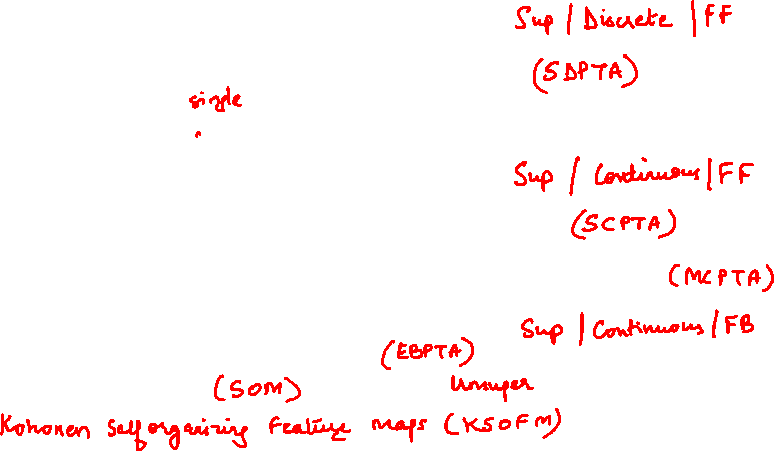 Sup / Discrete / FF
(SDPTA)
single
Sup / Continuous / FF
(SCPTA)
(MCPTA)
Sup / Continuous / FB
(EBPTA)
(SOM) Unsuper
Kohonen Self organizing Feature Maps (KSOFM)